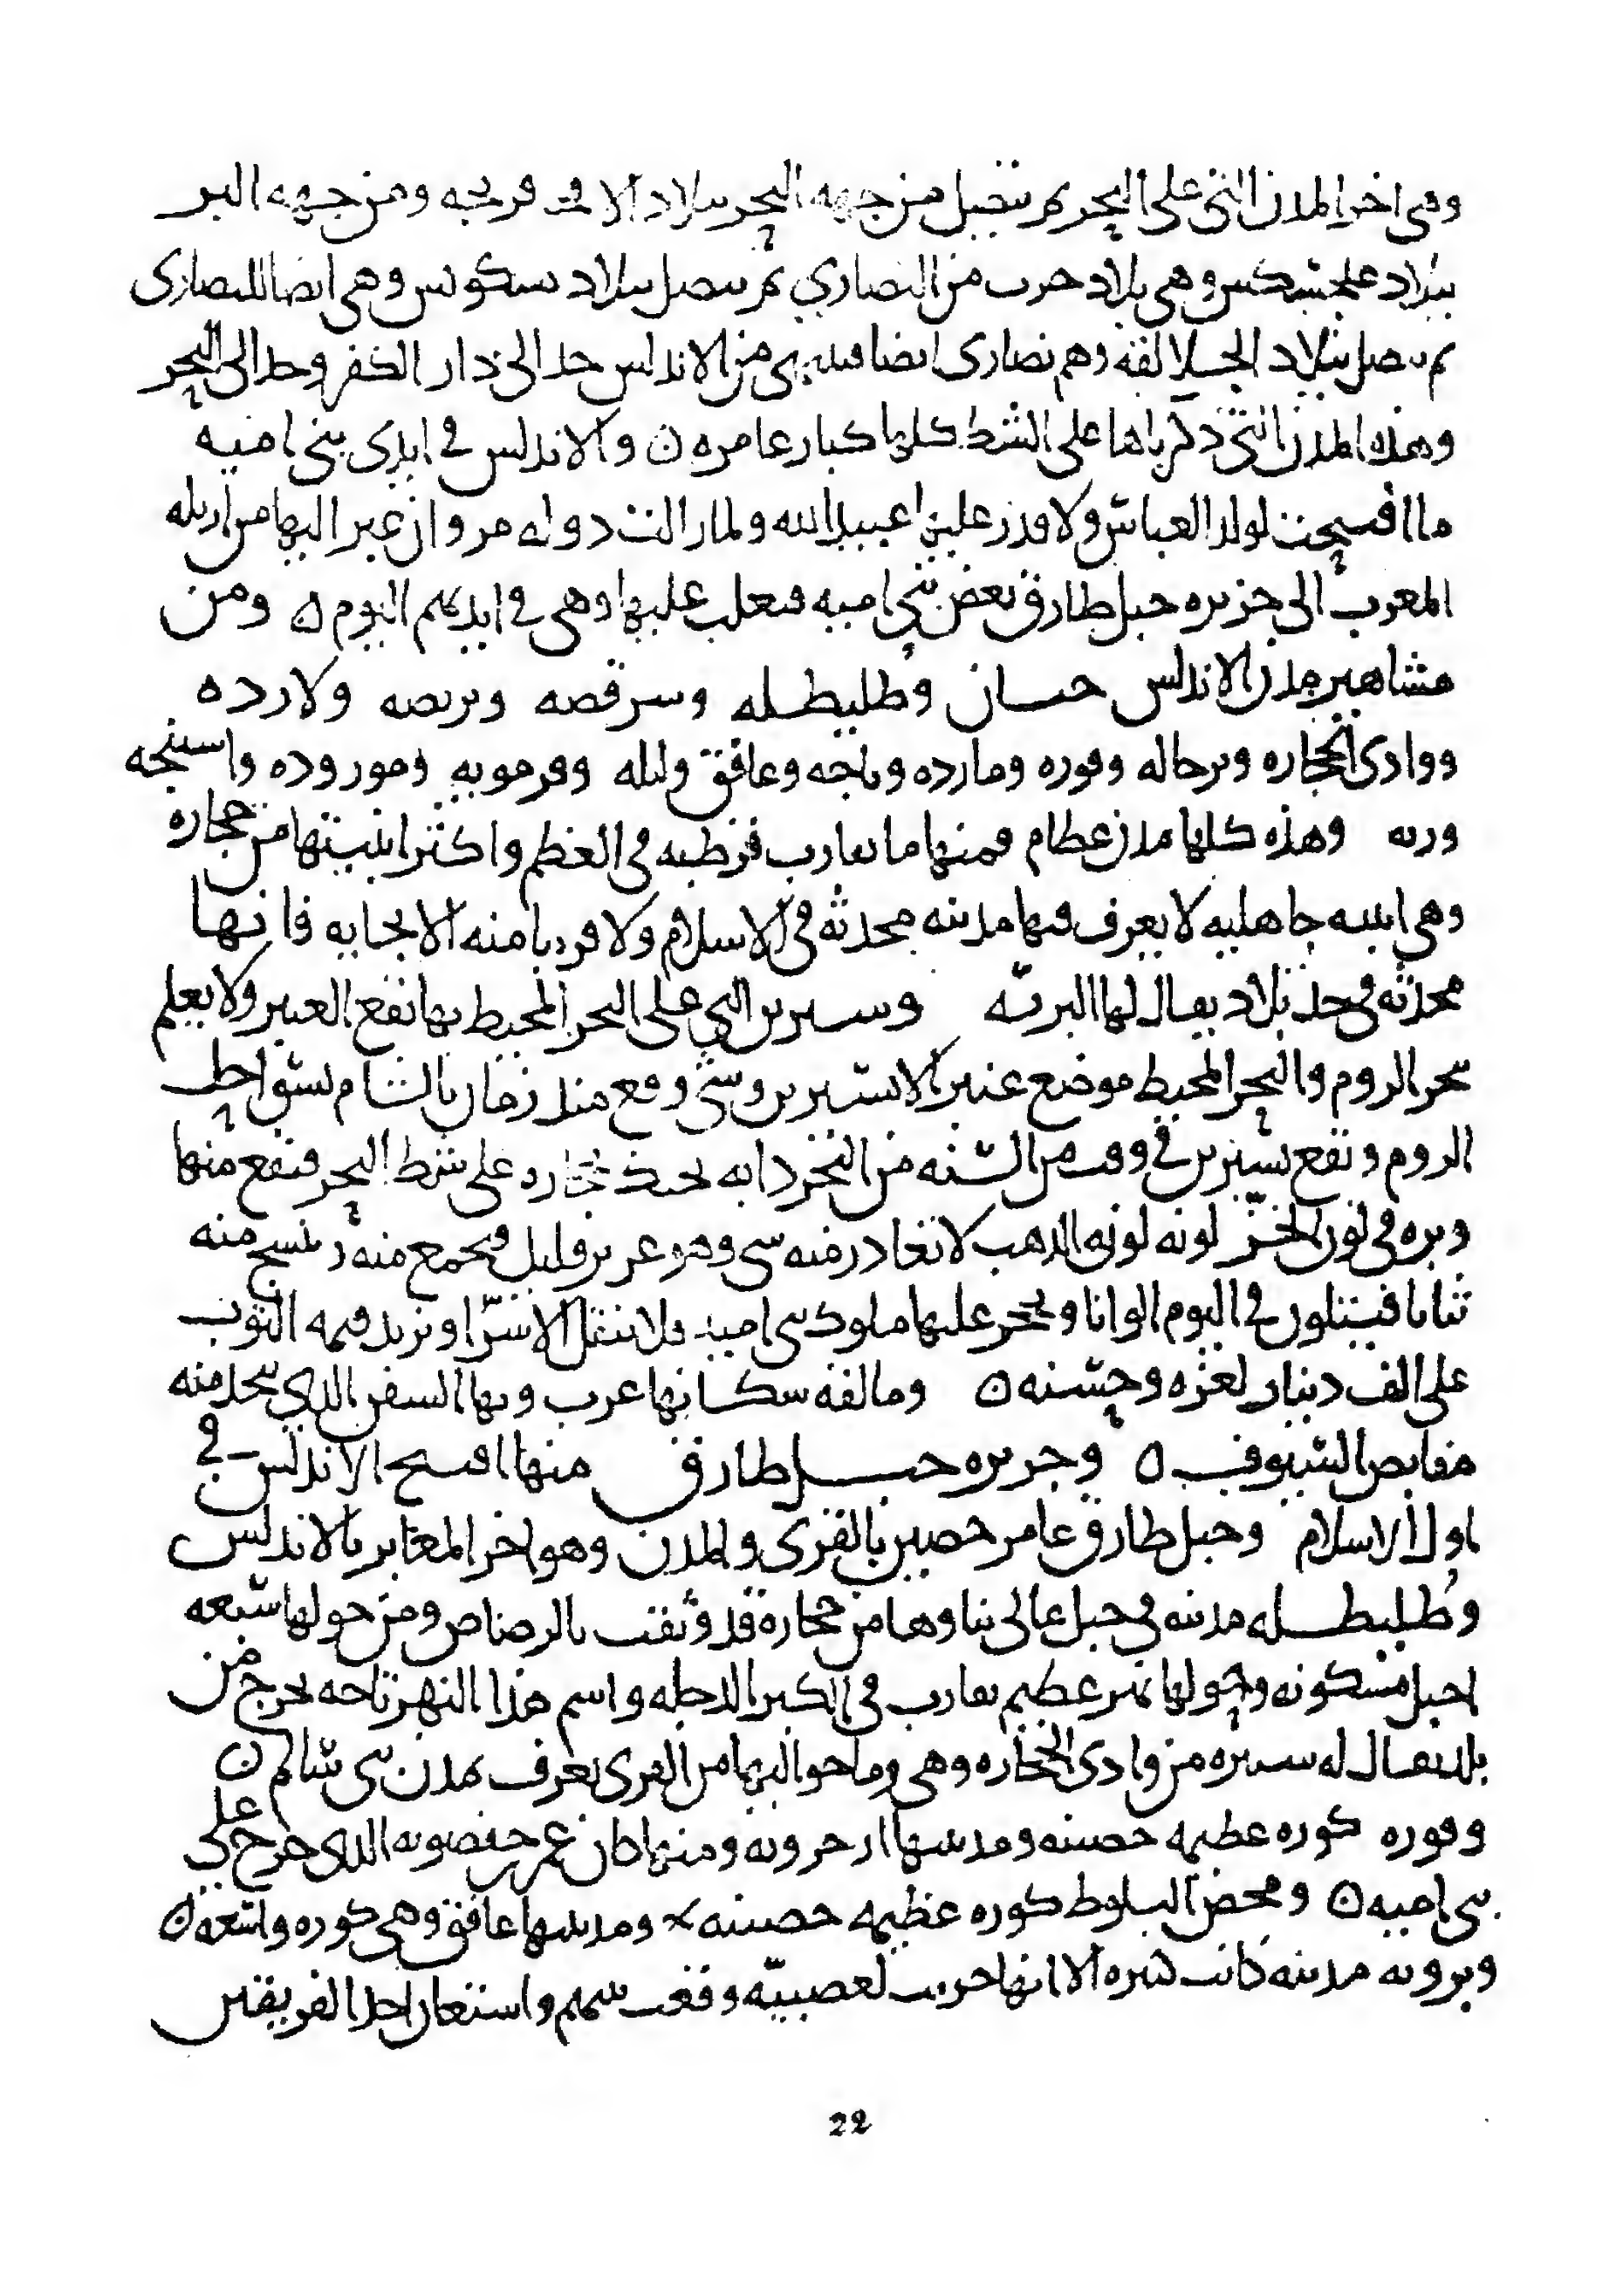 وهى اخر المدن التى على البحر ثم يتصل من جهه البحر ببلاد الافرنجه ومن جهه البر
ببلاد علجشكس وهى بلاد حرب من النصارى ثم يتصل ببلاد بسكونس وهى ايضا للنصارى
ثم يتصل ببلاد الجلالقه وهم نصارى ايضا فينتهى من الاندلس حد الى دار الكفر وحد الى البحر
وهذه المدن التى ذكرناها على الشط كلها كبار عامره ن والاندلس فى ايدى بنى اميه
ما افتتحت لولد العباس ولا قدر عليها عبيد الله ولما زالت دوله مروان عبر اليها من ازيله
المغرب الى جزيره جبل طارق بعض بنى اميه فتغلب عليها وهى فى ايديهم اليوم ن ومن
مشاهير مدن الاندلس جيان وطليطله وسرقصه ولارده
ووادى الحجاره وترجاله وقوره ومارده وباجه وغافق ولبله وقرمونه ومورده واستجه
وريه وهذه كلها مدن عظام فمنها ما يقارب قرطبه فى العظم واكثر ابنيتها من حجاره
وهى ابنيه جاهليه لا يعرف فيها مدينه محدثه فى الاسلام ولا قريبا منه الا بجانه فانها
محدثه فى حد بلاد يقال لها البيره وشنترين التى على البحر المحيط بها يقع العنبر ولا يعلم
ببحر الروم والبحر المحيط موضع عنبر الا شنترين وشى وقع منذ زمان بالشام بسواحل
الروم ويقع بشنترين فى وقت من السنه من البحر دابه تحتك بحجاره على شط البحر فيقع منها
وبره فى لون الخز لونه لون الذهب لا يغادر منه شى وهو عزيز قليل فيجمع منه وينسج منه
ثيابا فيتلون فى اليوم الوانا ويحجر عليها ملوك بنى اميه فلا ينقل الا سرا وتزيد قيمه الثوب
على الف دينار لعزه وحسنه ن ومالقه سكانها عرب وبها السفن الذى يتخذ منه
مقابض السيوف ن وجزيره جبل طارق منها افتتح الاندلس فى
اول الاسلام وجبل طارق عامر خصيب بالقرى والمدن وهو اخر المعابر بالاندلس
وطليطله مدينه فى جبل عالى بناوها من حجاره قد وثقت بالرصاص ومن حولها سبعه
اجبل مسكونه وحولها نهر عظيم يقارب فى الكبر الدجله واسم هذا النهر تاجه يخرج من
بلد يقال له شنتبريه من وادى الحجاره وهى وما حواليها من القرى تعرف بمدن بنى سالم ن
وقوره كوره عظيمه خصبه ومدينتها ارجذونه ومنها كان عمر بن حفصونه الذى خرج على
بنى اميه ن وفحص البلوط كوره عظيمه خصبه ومدينتها غافق وهى كوره واسعه ن
مدينه كانت كبيره الا انها خربت لعصبيه وقعت بينهم واستعان احد الفريقين
22